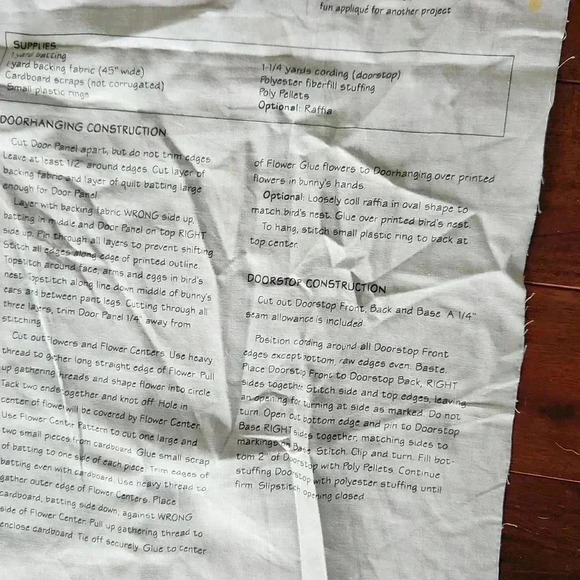 fun appliqué for another project
SUPPLIES
1 yard batting
1 yard backing fabric (45" wide)
Cardboard scraps (not corrugated)
Small plastic rings
1-1/4 yards cording (doorstop)
Polyester fiberfill stuffing
Poly Pellets
Optional: Raffia
DOORHANGING CONSTRUCTION
Cut Door Panel apart, but do not trim edges
Leave at least 1/2" around edges. Cut layer of
backing fabric and layer of quilt batting large
enough for Door Panel.
Layer with backing fabric WRONG side up,
batting in middle and Door Panel on top RIGHT
side up. Pin through all layers to prevent shifting
Stitch all edges along edge of printed outline.
Topstitch around face, arms and eggs in bird's
nest. Topstitch along line down middle of bunny's
ears and between pant legs. Cutting through all
three layers, trim Door Panel 1/4" away from
stitching.
Cut out Flowers and Flower Centers. Use heavy
thread to gather long straight edge of Flower. Pull
up gathering threads and shape flower into circle.
Tack two ends together and knot off. Hole in
center of flower will be covered by Flower Center.
Use Flower Center Pattern to cut one large and
two small pieces from cardboard. Glue small scrap
of batting to one side of each piece. Trim edges of
batting even with cardboard. Use heavy thread to
gather outer edge of Flower Centers. Place
cardboard, batting side down, against WRONG
side of Flower Center. Pull up gathering thread to
enclose cardboard. Tie off securely. Glue to center
of Flower. Glue flowers to Doorhanging over printed
flowers in bunny's hands.
Optional: Loosely coil raffia in oval shape to
match bird's nest. Glue over printed bird's nest.
To hang, stitch small plastic ring to back at
top center.
DOORSTOP CONSTRUCTION
Cut out Doorstop Front, Back and Base. A 1/4"
seam allowance is included.
Position cording around all Doorstop Front
edges except bottom, raw edges even. Baste.
Place Doorstop Front to Doorstop Back, RIGHT
sides together. Stitch side and top edges, leaving
an opening for turning at side as marked. Do not
turn. Open out bottom edge and pin to Doorstop
Base RIGHT sides together, matching sides to
markings on Base. Stitch. Clip and turn. Fill bot-
tom 2" of Doorstop with Poly Pellets. Continue
stuffing Doorstop with polyester stuffing until
firm. Slipstitch opening closed.